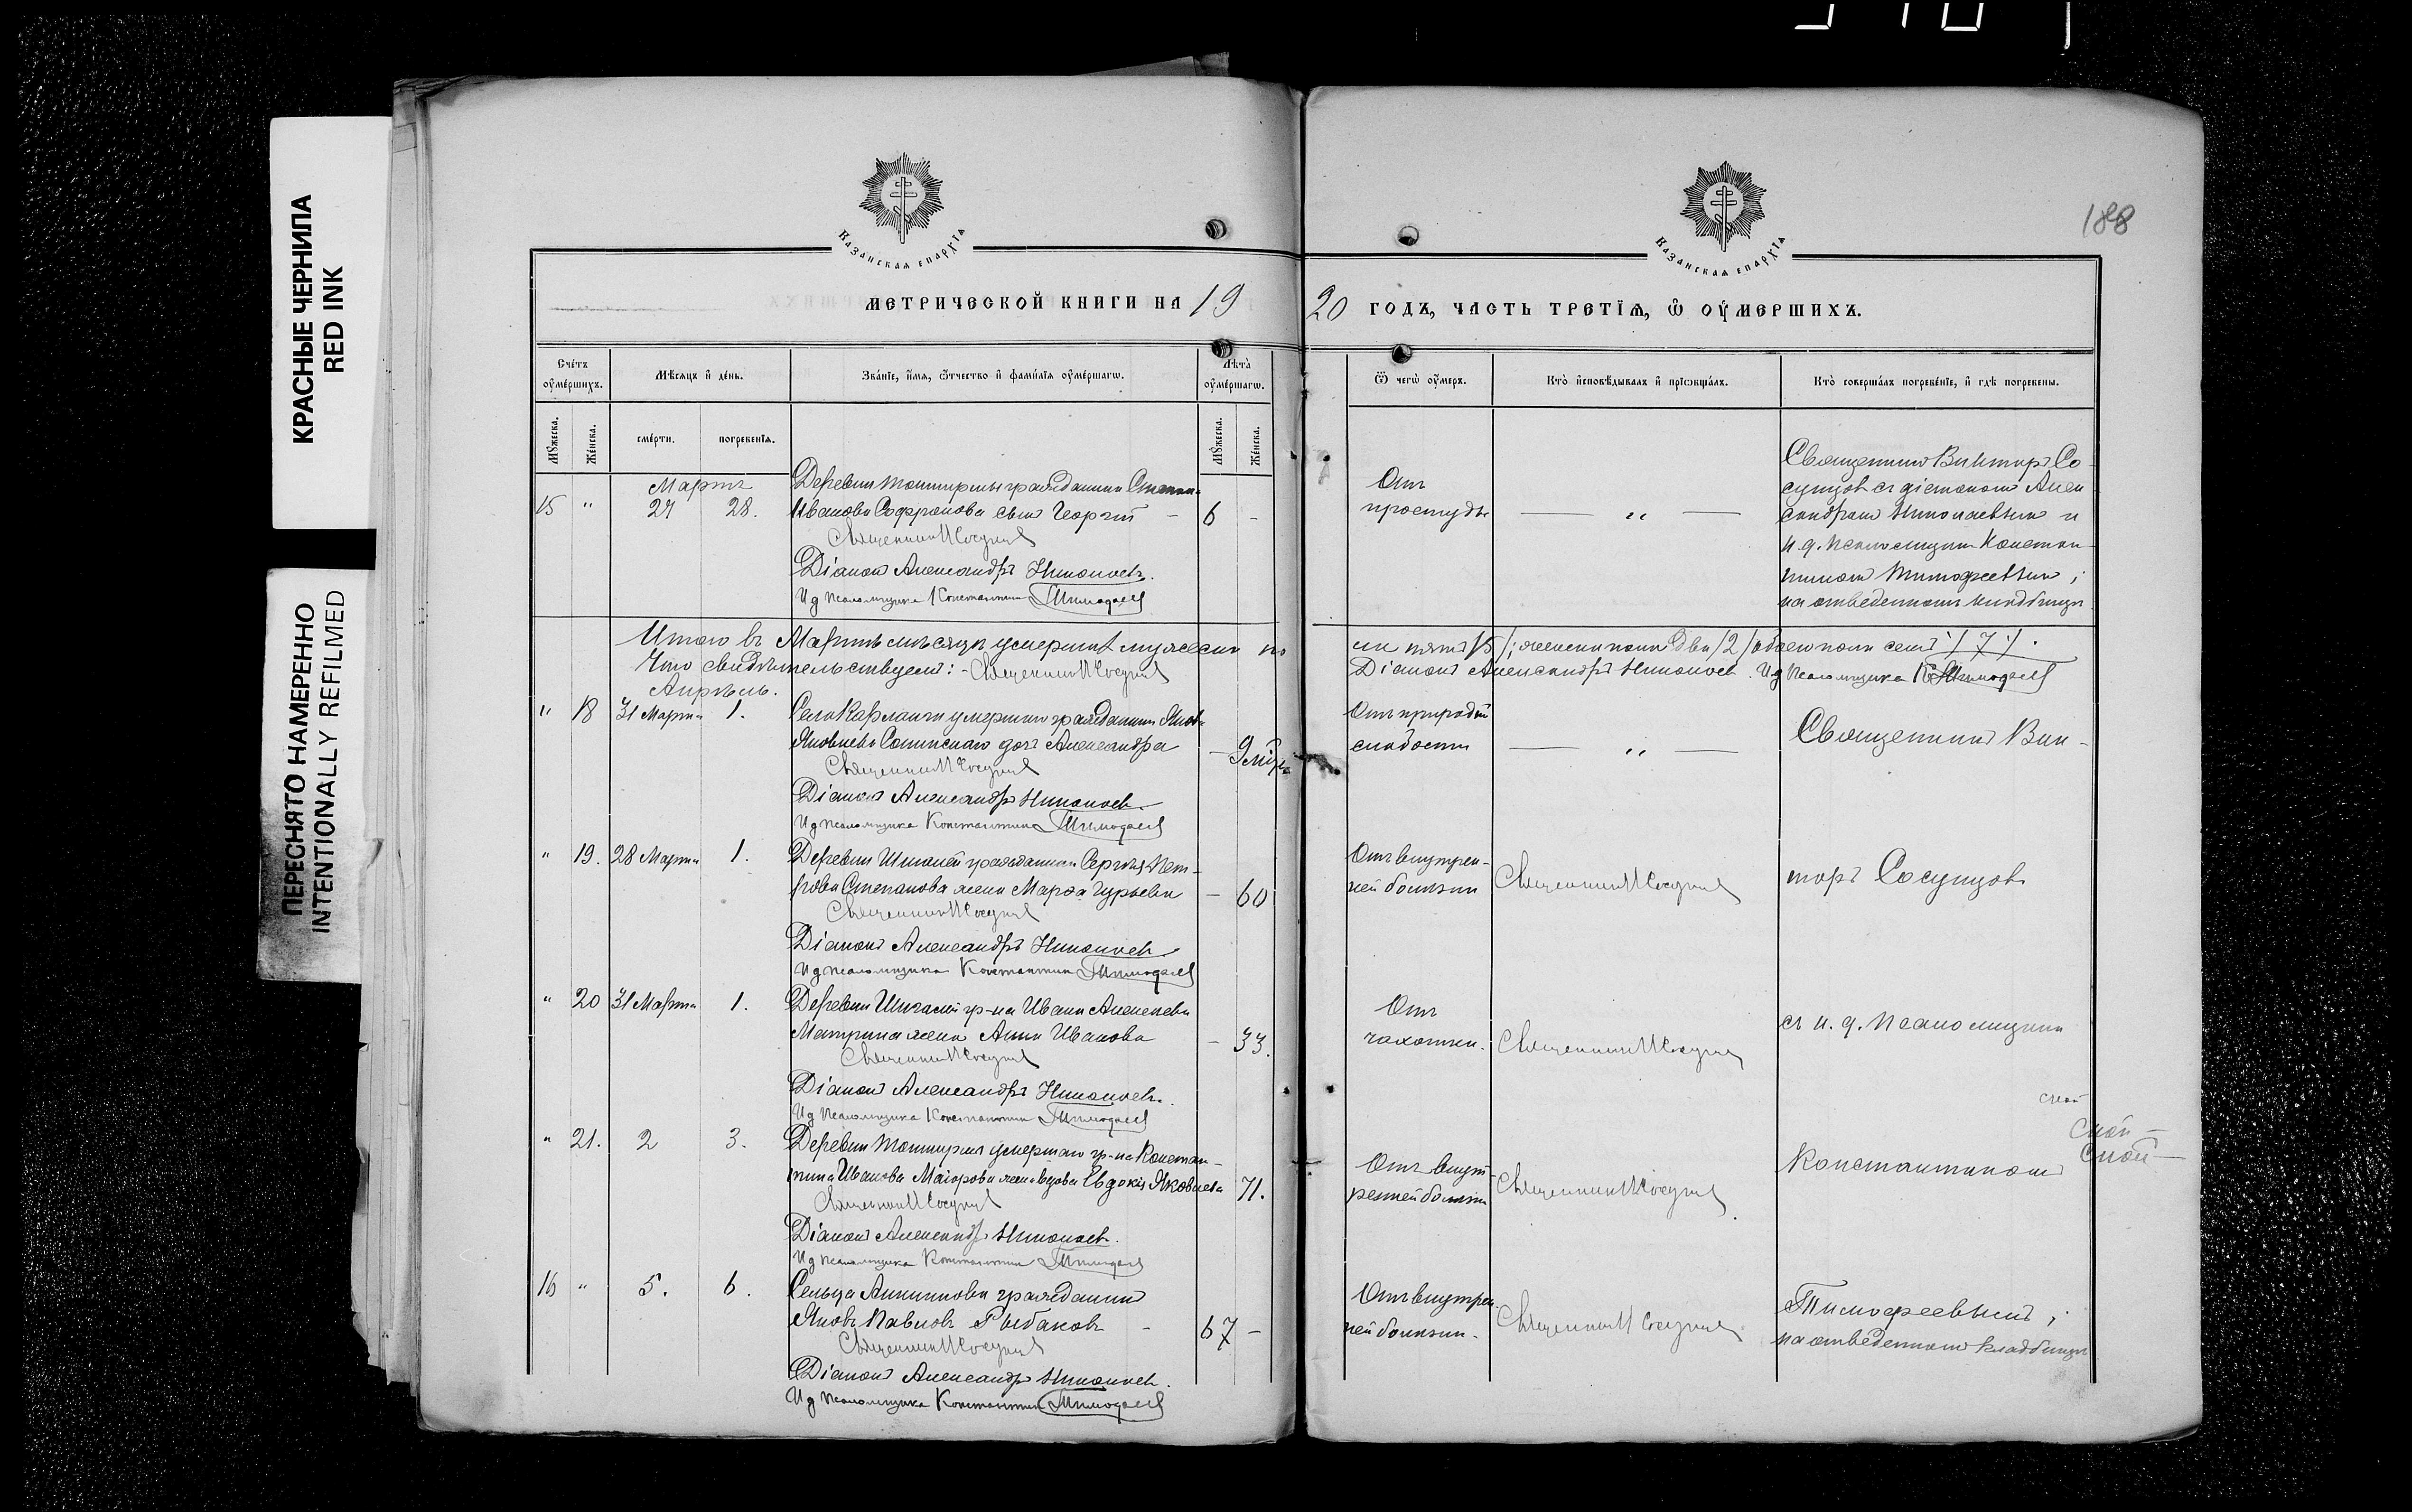 КРАСНЫЕ ЧЕРНИЛА
RED INK
ПЕРЕСНЯТО НАМЕРЕННО
INTENTIONALLY REFILMED
188
Казанскаѧ епархїѧ
Казанскаѧ епархїѧ
МЕТРИЧЕСКОЙ КНИГИ НА 19
20 ГОДЪ, ЧАСТЬ ТРЕТЇѦ, Ѽ ОУМЕРШИХЪ.
Счетъ оумершихъ.
Мѣсѧцъ и день.
Званїе, имѧ, ѿчество и фамилїѧ оумершагѡ.
Лѣта оумершагѡ.
Ѿ чегѡ оумеръ.
Кто исповѣдывалъ и прїѡбщалъ.
Кто совершалъ погребенїе, и гдѣ погребены.
Мꙋжеска.
Женска.
смерти.
погребенїѧ.
Мꙋжеска.
Женска.
Мартъ
15 " 27 28.
Деревни гражданина
Иванова Софронова сынъ Георгій - 6 -
Священникъ
Діаконъ Александръ Николаевъ.
И д псаломщика Константинъ Тимофеевъ
Отъ
простуды
— " —
Священникъ Викторъ Со-
сунцовъ съ діакономъ Алек
сандромъ Николаевымъ и
и. д. псаломщика Констан-
тиномъ Тимофеевымъ;
на отведенномъ кладбищѣ.
Итого въ Мартѣ мѣсяцѣ умершихъ мужеска по
ла пять /5/; женска пола два /2/ обоего пола семь /7/.
Что свидѣтельствуемъ: - Священникъ
Діаконъ Александръ Николаевъ. И д псаломщика К Тимофеевъ
Апрѣль.
" 18 31 Марта 1.
Села Карлангъ умершаго гражданина Якова
Яковлева дочь Александра - 9 мѣс.
Священникъ
Діаконъ Александръ Николаевъ.
И д псаломщика Константинъ Тимофеевъ
Отъ природной
слабости
— " —
Священникъ Вик-
" 19. 28 Марта 1.
Деревни гражданина Сергѣя Пет-
рова Степанова жена Марѳа Гурьева - 60
Священникъ
Діаконъ Александръ Николаевъ
И д псаломщика Константинъ Тимофеевъ
Отъ внутрен-
ней болѣзни
Священникъ
торъ Сосунцовъ
" 20 31 Марта 1.
Деревни гр-на Ивана Алексѣева
жена Анна Иванова - 33.
Священникъ
Діаконъ Александръ Николаевъ.
И д псаломщика Константинъ Тимофеевъ
Отъ
чахотки.
Священникъ
съ и. д. псаломщика
" 21. 2 3.
Деревни умершаго гр-на Констан-
тина Иванова Маіорова жена вдова Евдокія Яковлева 71.
Священникъ
Діаконъ Александръ Николаевъ.
И д псаломщика Константинъ Тимофеевъ
Отъ внут-
ренней болѣзни
Священникъ
Константиномъ
16 " 5. 6.
Сельца гражданинъ
Яковъ Павловъ Рыбаковъ - 67 -
Священникъ
Діаконъ Александръ Николаевъ.
И д псаломщика Константинъ Тимофеевъ
Отъ внутрен-
ней болѣзни.
Священникъ
Тимофеевымъ;
на отведенномъ кладбищѣ